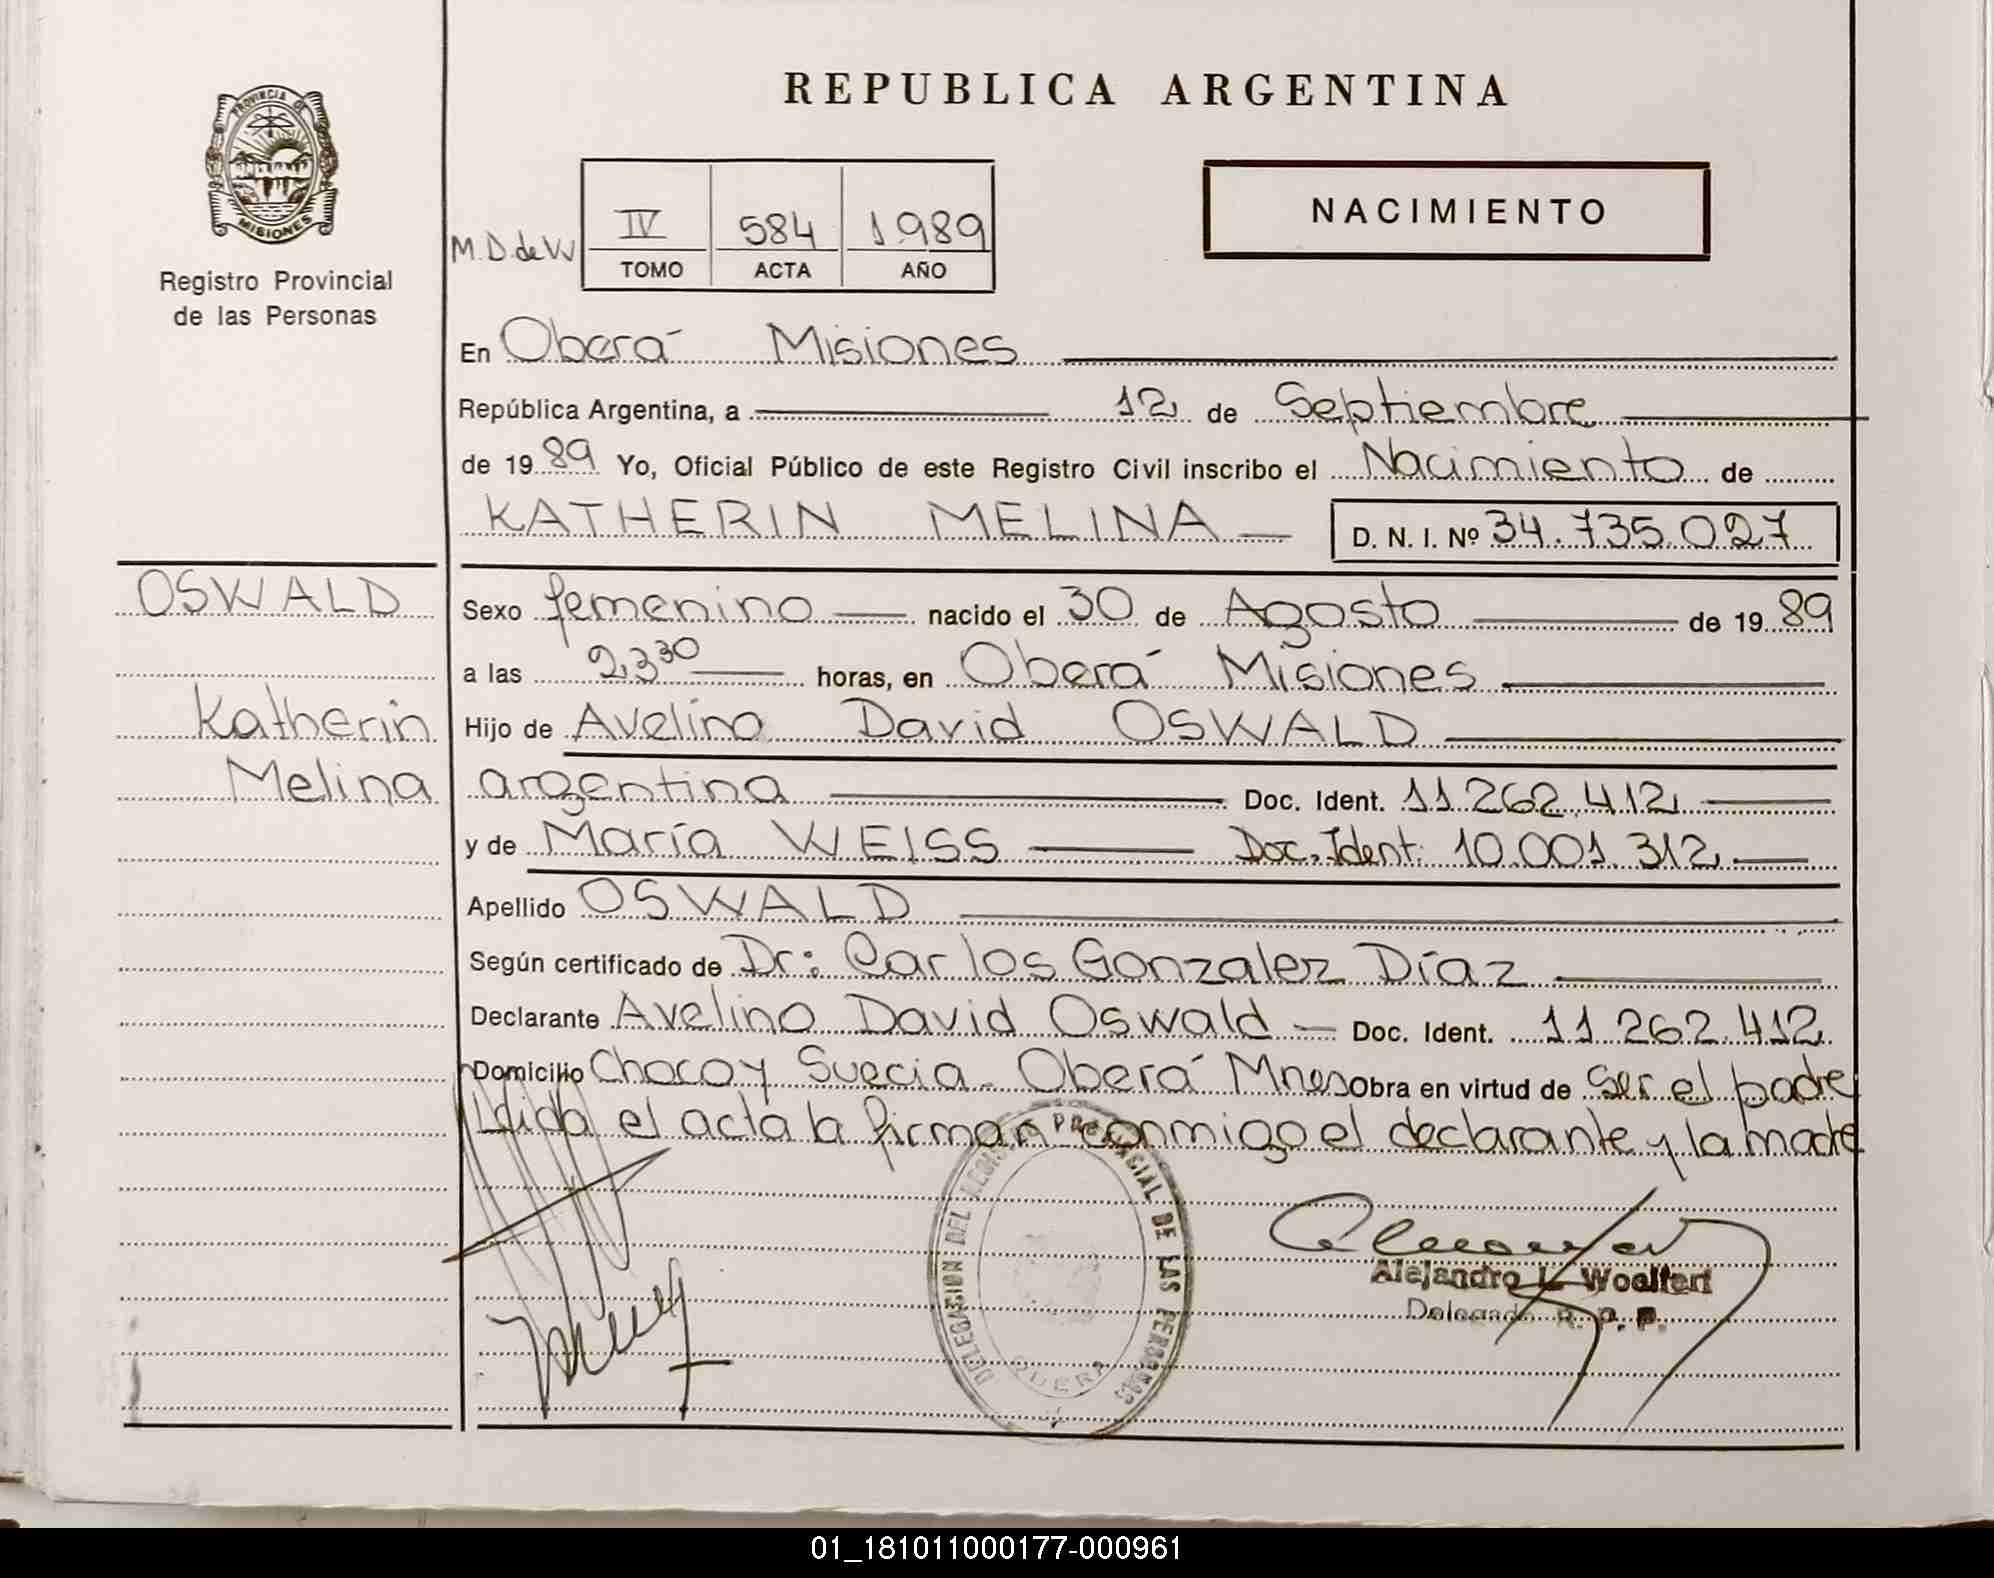 REPUBLICA ARGENTINA
PROVINCIA DE
MISIONES
Registro Provincial
de las Personas
M.D. de W
IV 584 1989
TOMO ACTA AÑO
NACIMIENTO
En Oberá Misiones
República Argentina, a 12 de Septiembre
de 19 89 Yo, Oficial Público de este Registro Civil inscribo el Nacimiento de
KATHERIN MELINA D. N. I. Nº 34.735.027
OSWALD
Katherin
Melina
Sexo femenino nacido el 30 de Agosto de 19 89
a las 23 30 horas, en Oberá Misiones
Hijo de Avelino David OSWALD
argentina Doc. Ident. 11.262.412
y de María WEISS Doc. Ident. 10.001.312
Apellido OSWALD
Según certificado de Dr: Carlos Gonzalez Díaz
Declarante Avelino David Oswald Doc. Ident. 11.262.412
Domicilio Chaco y Suecia. Oberá Mnes Obra en virtud de ser el padre
Leída el acta la firman conmigo el declarante y la madre
DELEGACION DEL REGISTRO PROVINCIAL DE LAS PERSONAS
OBERA
Alejandro L. Woolfert
Delegado R. P. P.
01_181011000177-000961